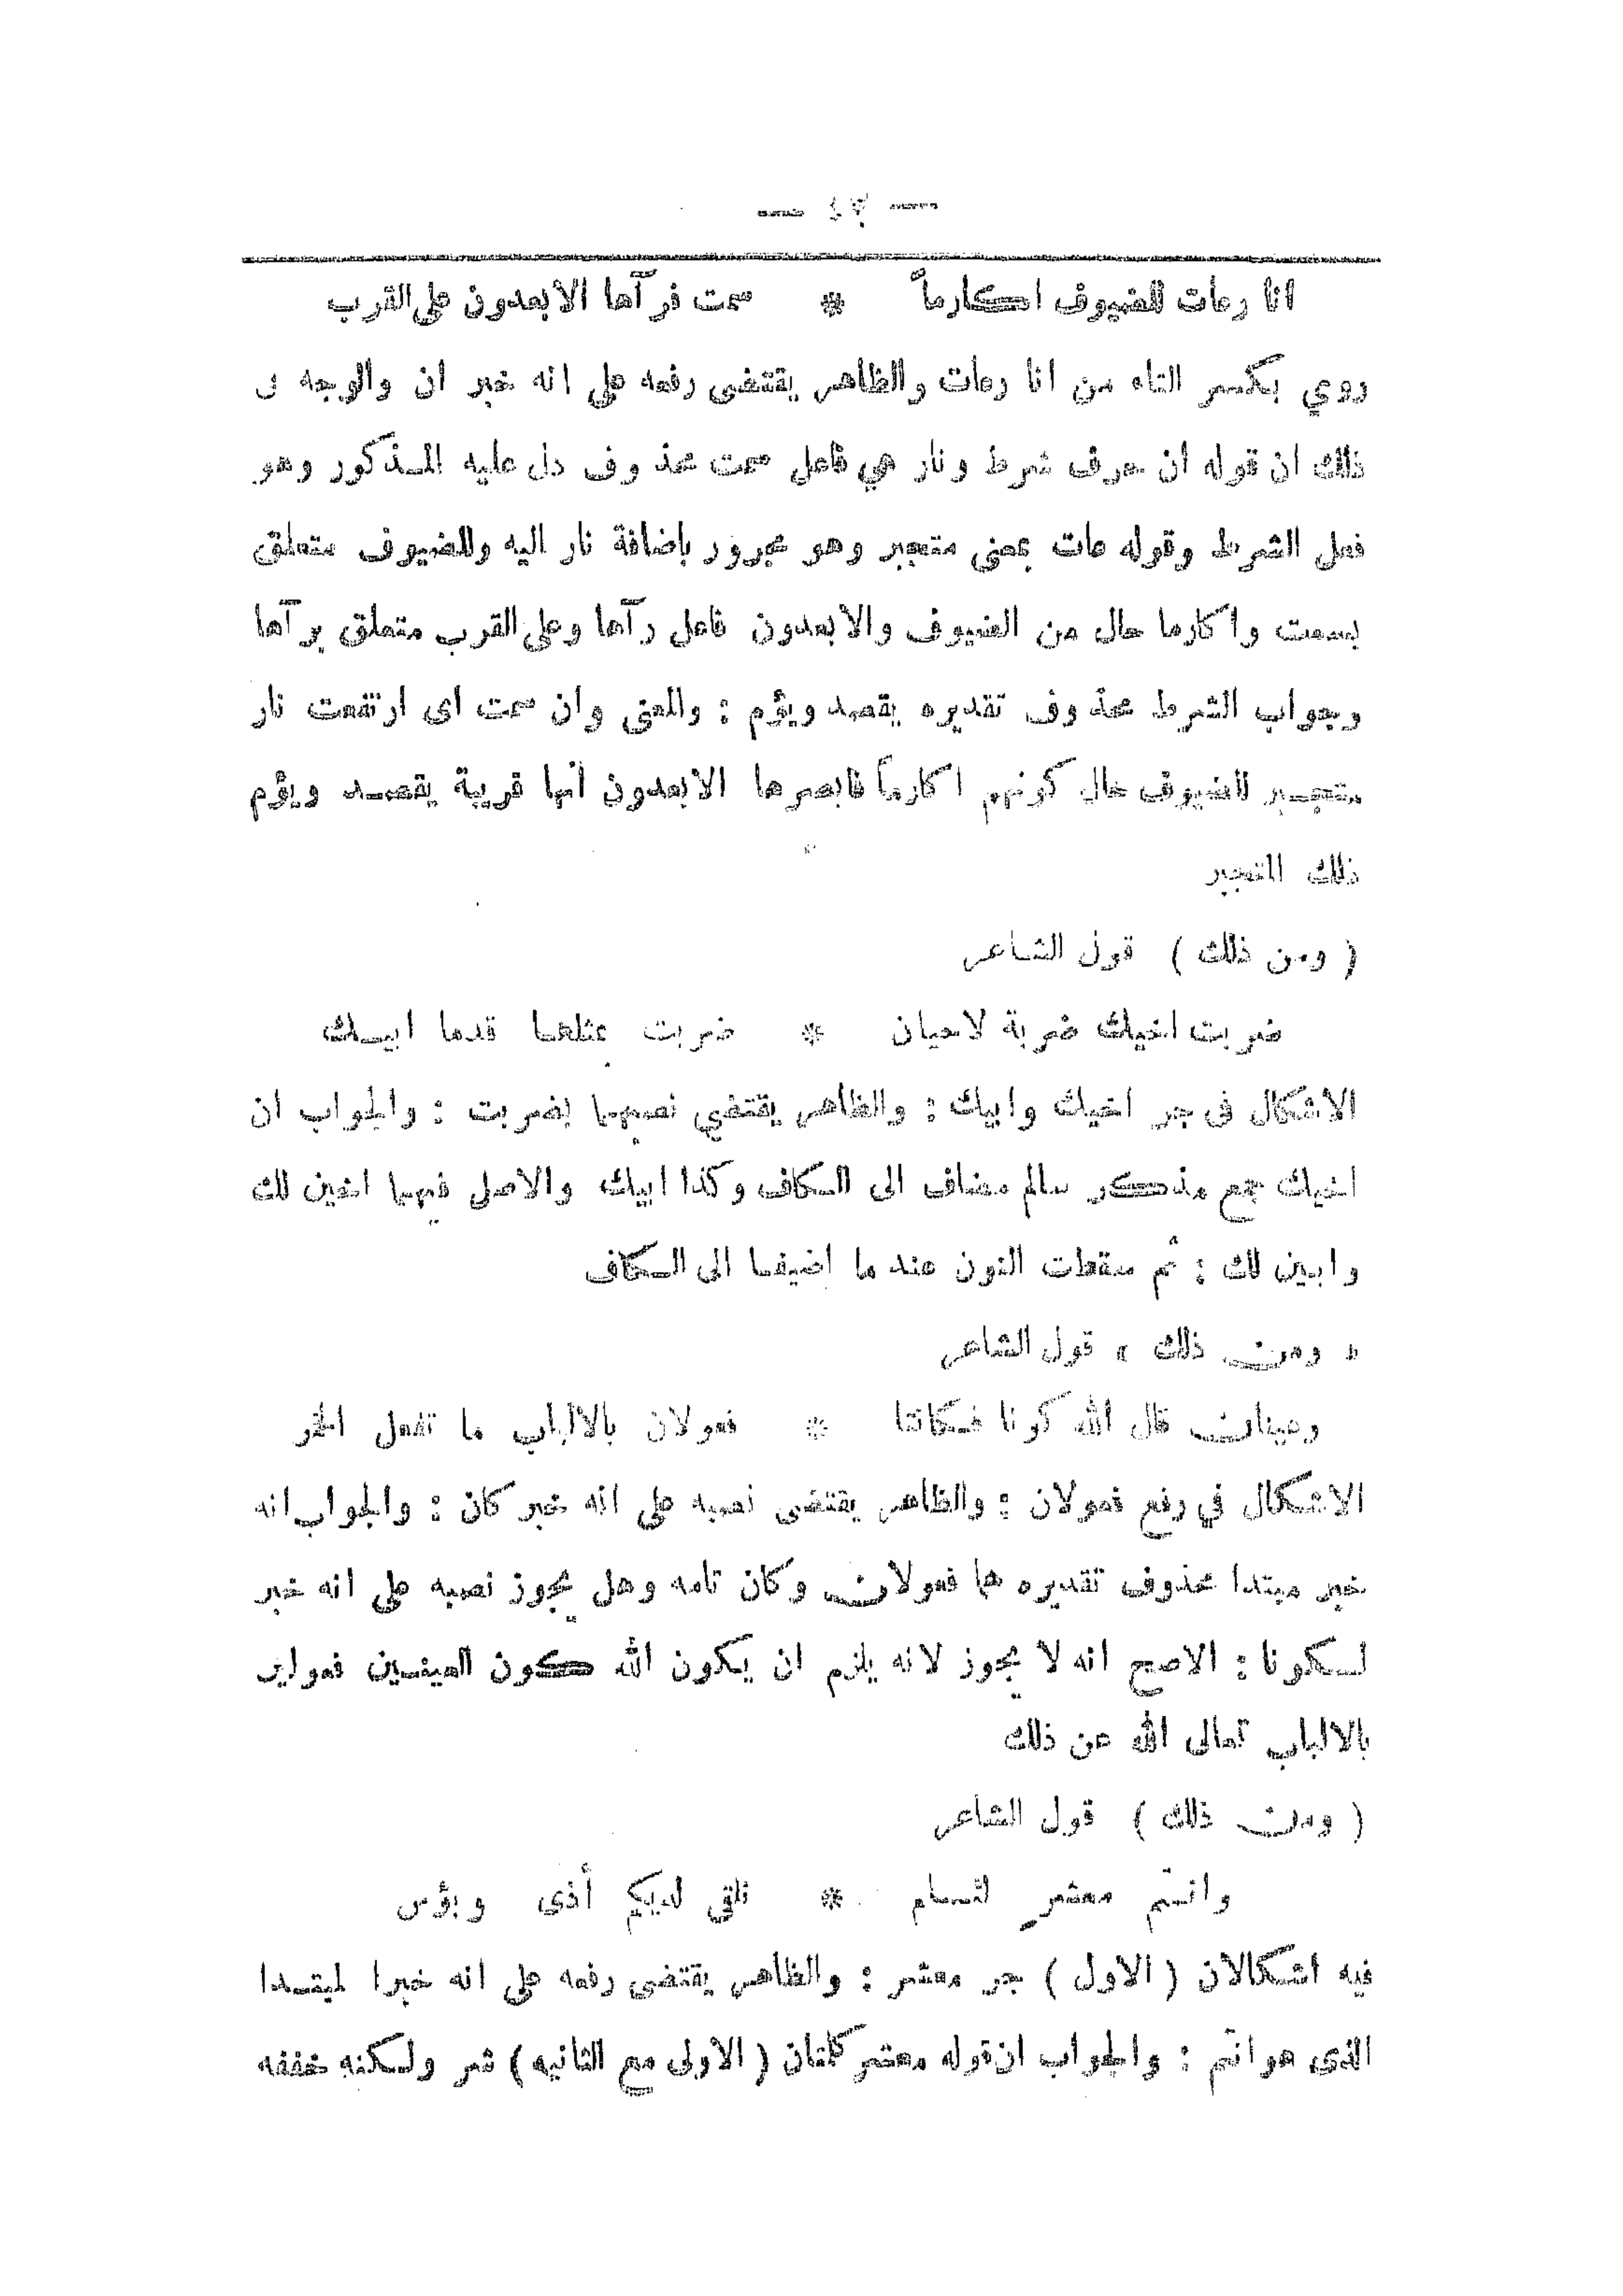 — ٤٧ —
انا رعات للضيوف اكارماً * سمت فرآها الابعدون على القرب
روي بكسر التاء من انا رعات والظاهر يقتضى رفعه على انه خبر ان والوجه فى
ذلك ان قوله ان حرف شرط ونار هي فاعل سمت محذوف دل عليه المذكور وهو
فعل الشرط وقوله عات بمعنى متجبر وهو مجرور باضافة نار اليه وللضيوف متعلق
بسمت واكارما حال من الضيوف والابعدون فاعل رآها وعلى القرب متعلق برآها
وجواب الشرط محذوف تقديره يقصد ويؤم : والمعنى وان سمت اى ارتفعت نار
متجبر للضيوف حال كونهم اكارماً فابصرها الابعدون أنها قريبة يقصد ويؤم
ذلك المتجبر
( ومن ذلك ) قول الشاعر
ضربت اخيك ضربة لاحيان * ضربت بمثلها قدما ابيك
الاشكال فى جر اخيك وابيك : والظاهر يقتضي نصبهما بضربت : والجواب ان
اخيك جمع مذكر سالم مضاف الى الكاف وكذا ابيك والاصل فيهما اخين لك
وابين لك : ثم سقطت النون عند ما اضيفا الى الكاف
« ومن ذلك » قول الشاعر
وعينان قال الله كونا فكانتا * فعولان بالالباب ما تفعل الخمر
الاشكال في رفع فعولان : والظاهر يقتضى نصبه على انه خبر كان : والجواب انه
خبر مبتدا محذوف تقديره هما فعولان وكان تامه وهل يجوز نصبه على انه خبر
لكونا : الاصح انه لا يجوز لانه يلزم ان يكون الله كون العينين فعولين
بالالباب تعالى الله عن ذلك
( ومن ذلك ) قول الشاعر
وانتم معشرٍ لئام * نلقى لديكم أذى وبؤس
فيه اشكالان ( الاول ) جر معشر : والظاهر يقتضى رفعه على انه خبرا لمبتدا
الذى هو انتم : والجواب ان قوله معشر كلمتان ( الاولى مع الثانيه ) شر ولكنه خففه